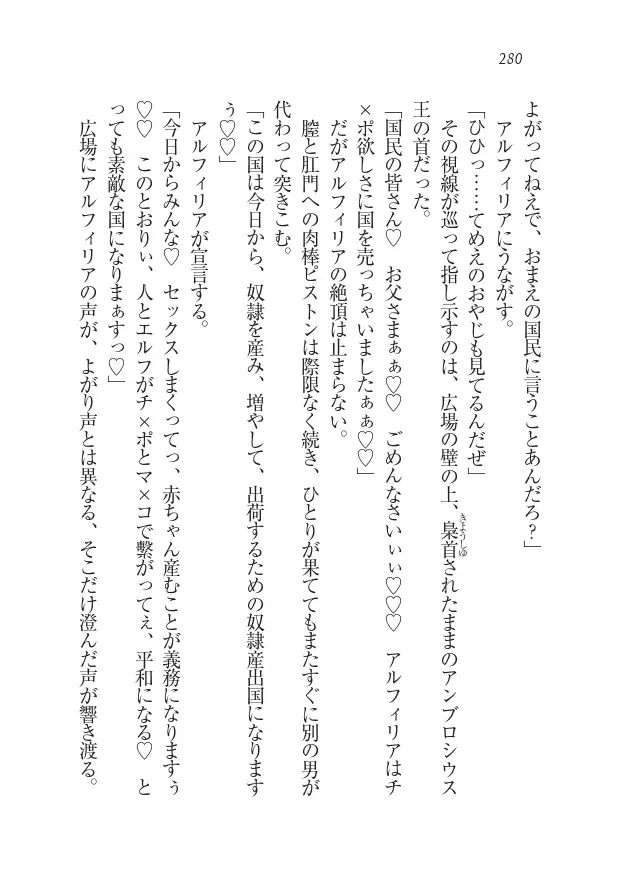 280
よがってねえで、おまえの国民に言うことあんだろ？」
アルフィリアにうながす。
「ひひっ……てめえのおやじも見てるんだぜ」
その視線が巡って指し示すのは、広場の壁の上、梟首されたままのアンブロシウス
きょうしゅ
王の首だった。
「国民の皆さん♡　お父さまぁぁ♡♡　ごめんなさいぃぃ♡♡♡　アルフィリアはチ
×ポ欲しさに国を売っちゃいましたぁぁ♡♡」
だがアルフィリアの絶頂は止まらない。
膣と肛門への肉棒ピストンは際限なく続き、ひとりが果ててもまたすぐに別の男が
代わって突きこむ。
「この国は今日から、奴隷を産み、増やして、出荷するための奴隷産出国になります
ぅ♡♡」
アルフィリアが宣言する。
「今日からみんな♡　セックスしまくってっ、赤ちゃん産むことが義務になりますぅ
♡♡　このとおりぃ、人とエルフがチ×ポとマ×コで繋がってぇ、平和になる♡　と
っても素敵な国になりまぁすっ♡」
広場にアルフィリアの声が、よがり声とは異なる、そこだけ澄んだ声が響き渡る。